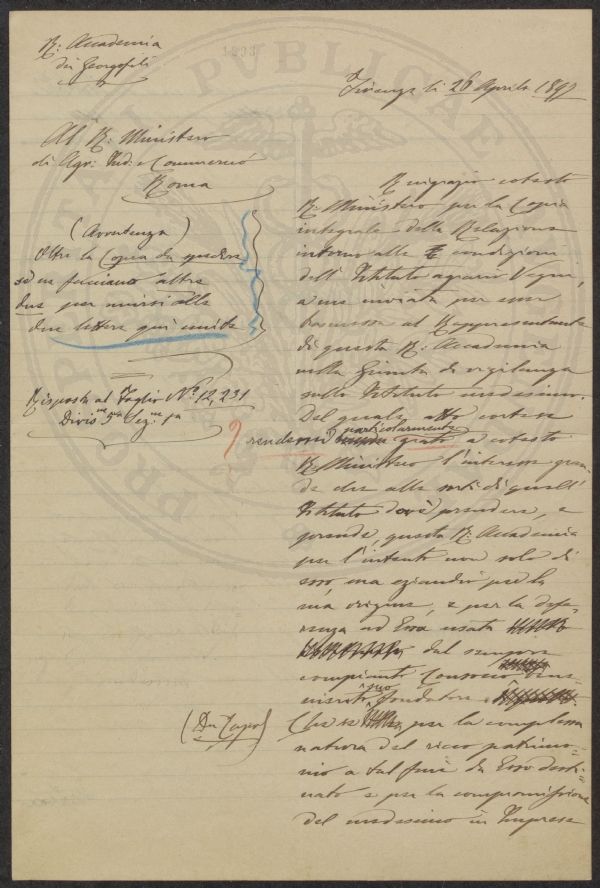 R: Accademia
dei Georgofili
1893
PROSPERITATI PUBLICAE
Firenze li 26 Aprile 1897
Al R: Ministero
di Agr: Ind: e Commercio
Roma
(Avvertenza)
Oltre la Copia da spedire
se ne facciano altre
due per unirsi alle
due lettere qui unite
Risposta al Foglio Nº 12,231
Divis.ne 5a Sez.ne 1a
Ringrazio cotesto
R: Ministero per la Copia
integrale della Relazione
intorno alle condizioni
dell'Istituto agrario Vegni,
a me inviata per esser
trasmessa al Rappresentante
di questa R: Accademia
nella Giunta di vigilanza
sullo Istituto medesimo.
Del quale atto
rendemi particolarmente grato a cotesto
R: Ministero l'interesse gran-
de che alle sorti di quell'
Istituto dovè prendere, e
prende, questa R: Accademia
per l'intento non solo di
esso, ma eziandio per la
sua origine, e per la defe-
renza ad Essa usata
dal sempre
compianto Consocio bene-
merito suo fondatore
(Da Capo)
Che se per la complessa
natura del ricco patrimo-
nio a tal fine da Esso desti-
nato e per la compromissione
del medesimo in Imprese